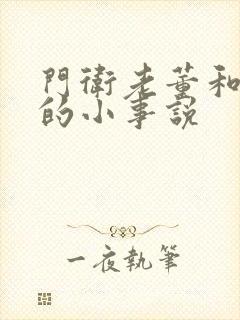 門衛老董和
的小事說
一夜執筆